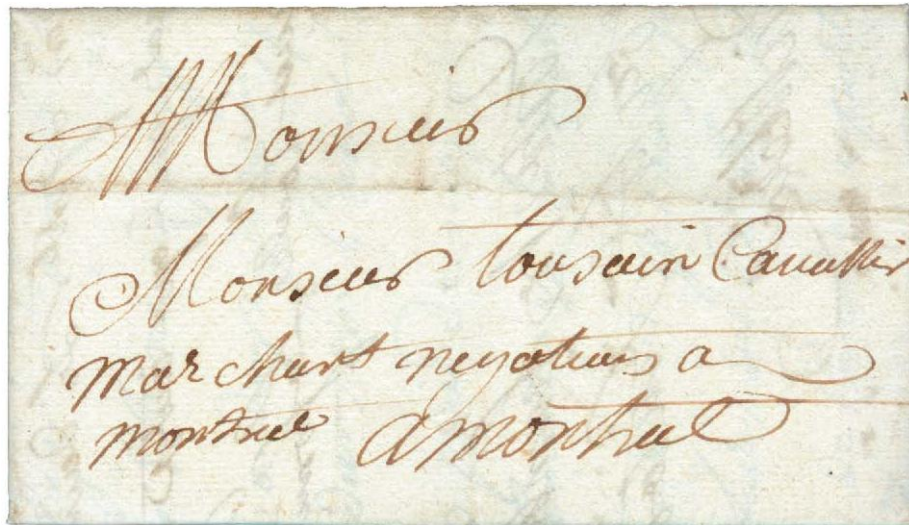 A Monsieur
Monsieur tousain Cauallier
marchant negotians a
montreal a montreal